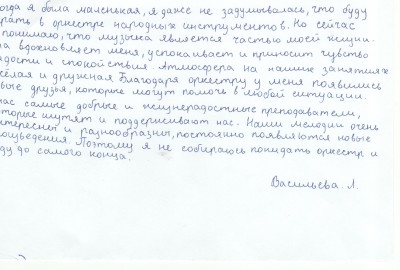 огда я была маленькая, я даже не задумывалась, что буду
рать в оркестре народных инструментов. На сейчас
понимаю, что музыка является частью моей жизни.
на вдохновляет меня, успокаивает и приносит чувство
адости и спокойствия. Атмосфера на наших занятиях
сёлая и дружная. Благодаря оркестру у меня появились
вые друзья, которые могут помочь в любой ситуации.
нас самые добрые и жизнерадостные преподаватели,
торые шутят и поддерживают нас. Наши мелодии очень
тересны и разнообразны, постоянно появляются новые
оизведения. Поэтому я не собираюсь покидать оркестр и
ду до самого конца.
Васильева Л.